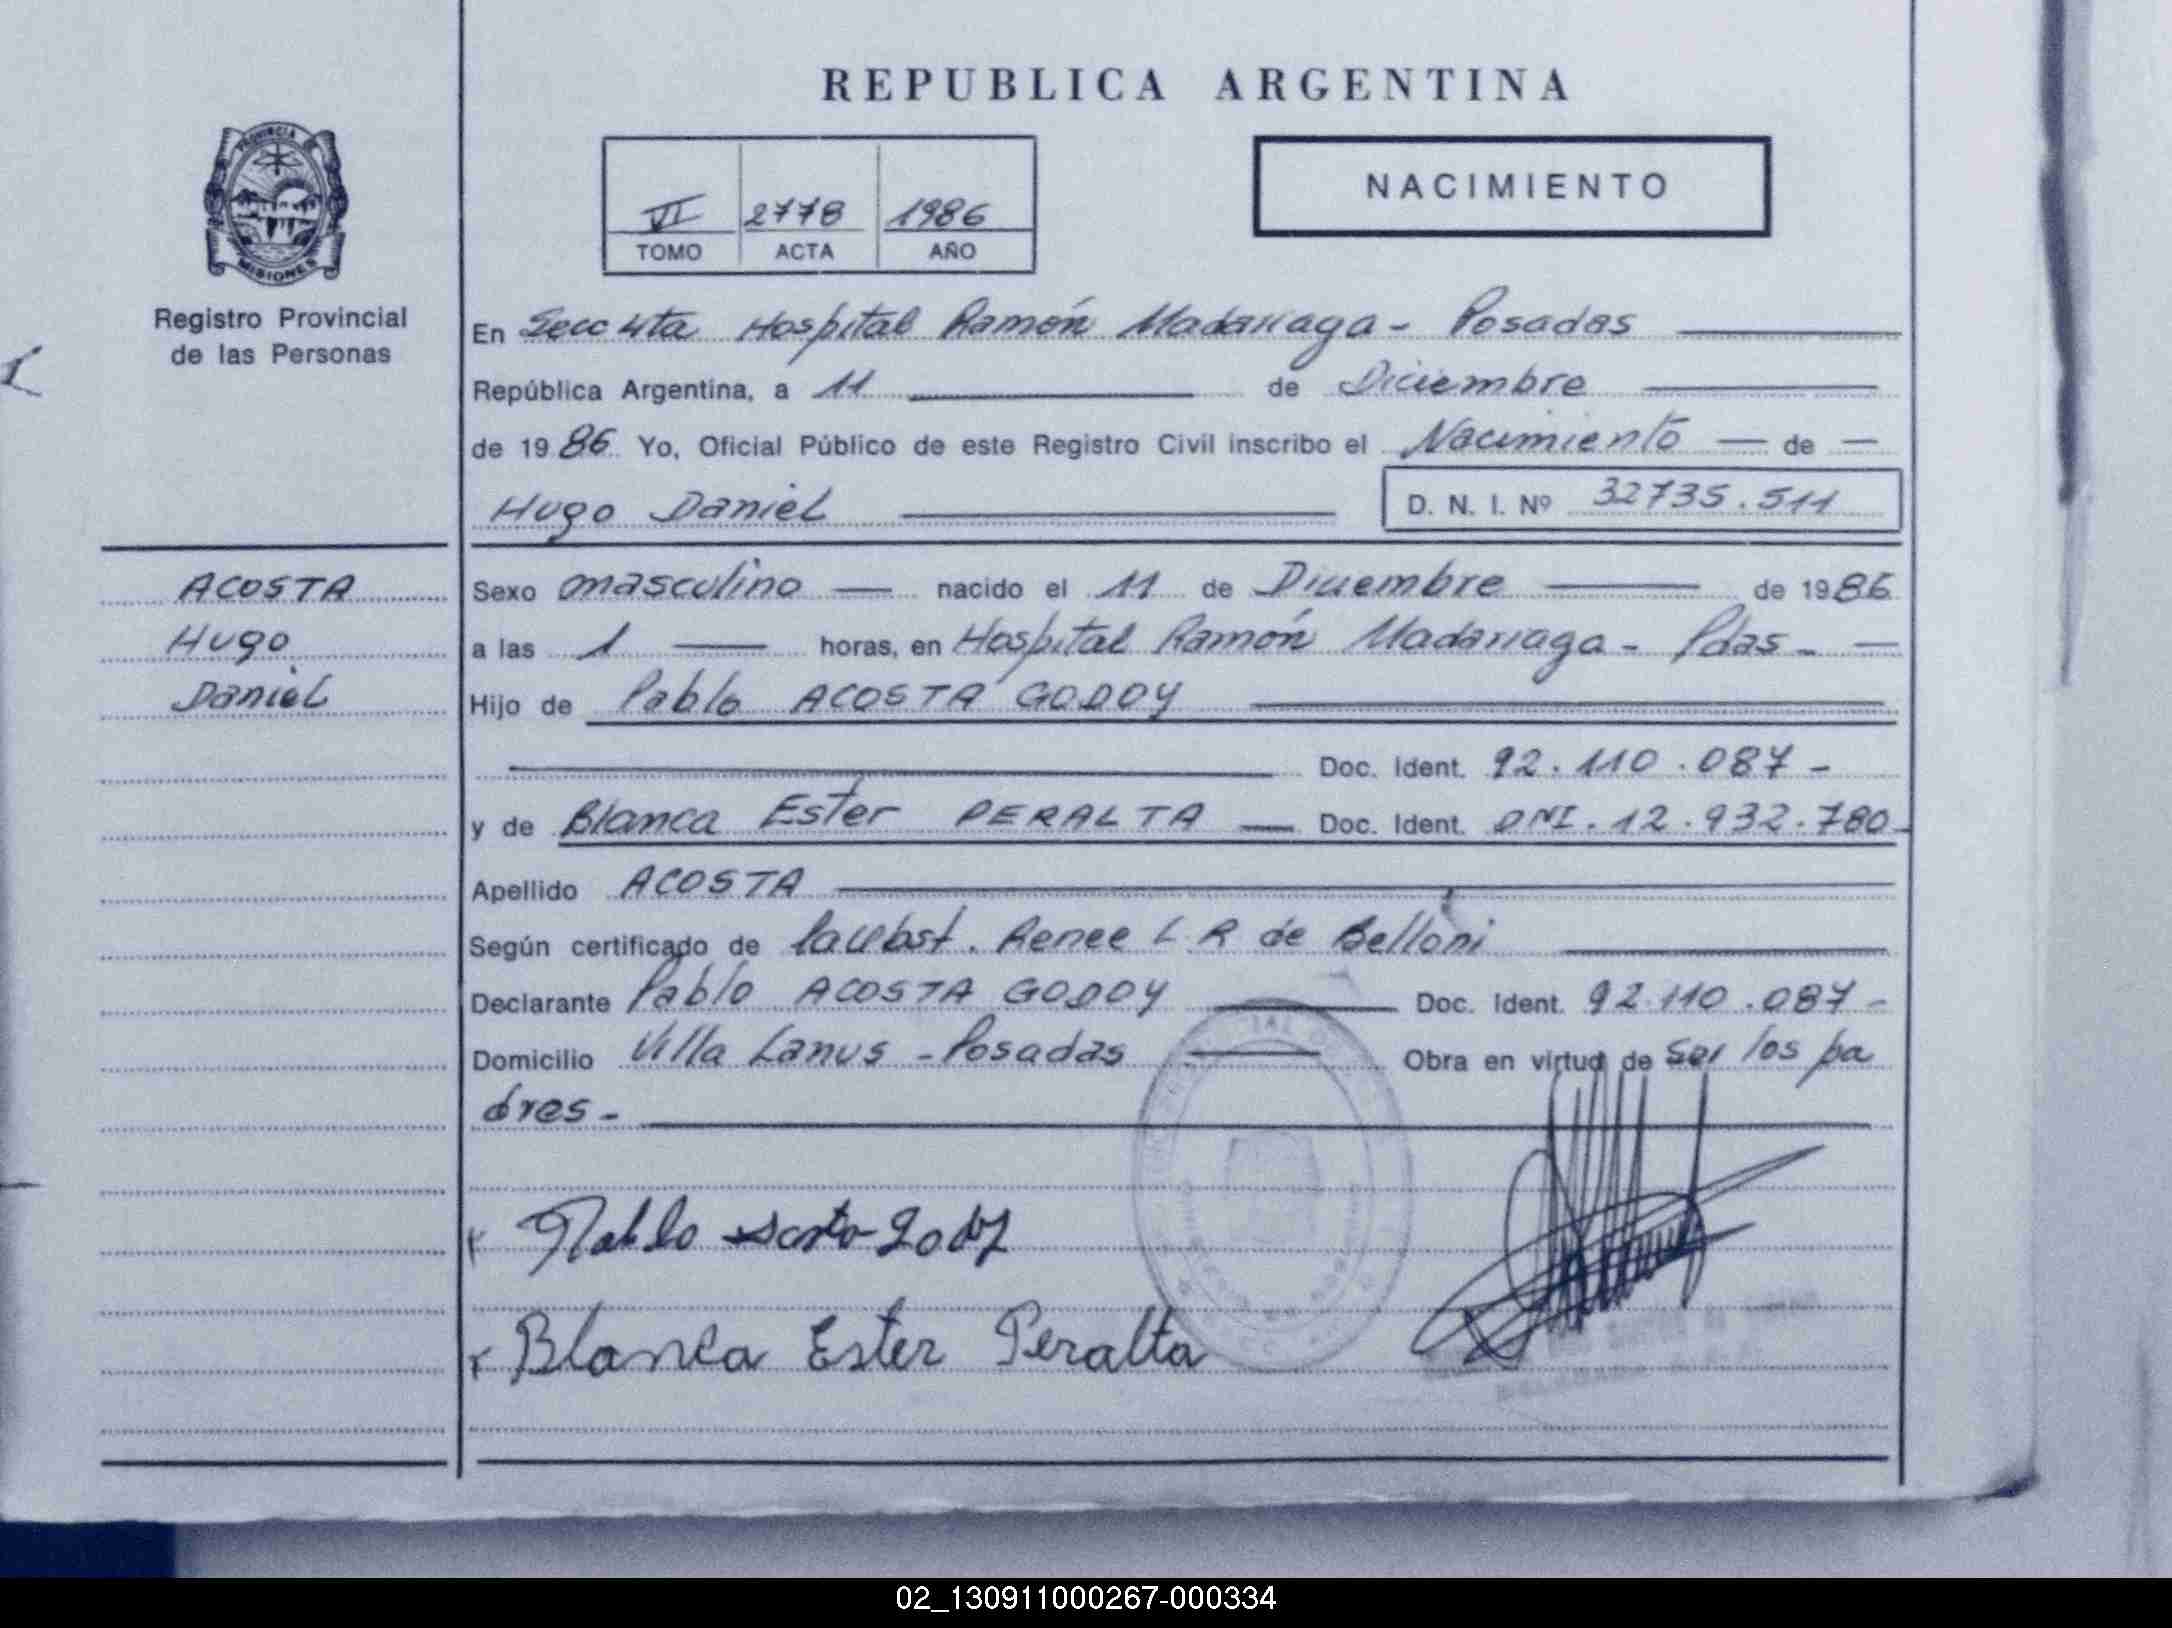 REPUBLICA ARGENTINA
PROVINCIA DE
MISIONES
Registro Provincial
de las Personas
VI 2778 1986
TOMO ACTA AÑO
NACIMIENTO
En Secc 4ta Hospital Ramón Madariaga - Posadas
República Argentina, a 11 de Diciembre
de 1986 Yo, Oficial Público de este Registro Civil inscribo el Nacimiento de
Hugo Daniel D. N. I. Nº 32735.511
ACOSTA
Hugo
Daniel
Sexo masculino nacido el 11 de Diciembre de 1986
a las 1 horas, en Hospital Ramón Madariaga - Pdas -
Hijo de Pablo ACOSTA GODOY
Doc. Ident. 92.110.087 -
y de Blanca Ester PERALTA Doc. Ident. DNI. 12.932.780
Apellido ACOSTA
Según certificado de Renee L R de Belloni
Declarante Pablo ACOSTA GODOY Doc. Ident. 92.110.087 -
Domicilio Villa Lanus - Posadas Obra en virtud de ser los pa
dres -
x Pablo Acosta Godoy
x Blanca Ester Peralta
02_130911000267-000334